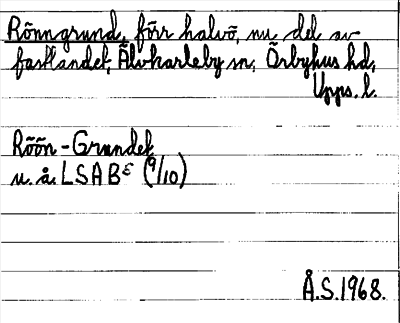 Rönngrund, förr halvö, nu del av
fastlandet, Älvkarleby sn, Örbyhus hd,
Upps. l.
Röön-Grundet
u. å. LSAB ε (9/10)
Å.S. 1968.